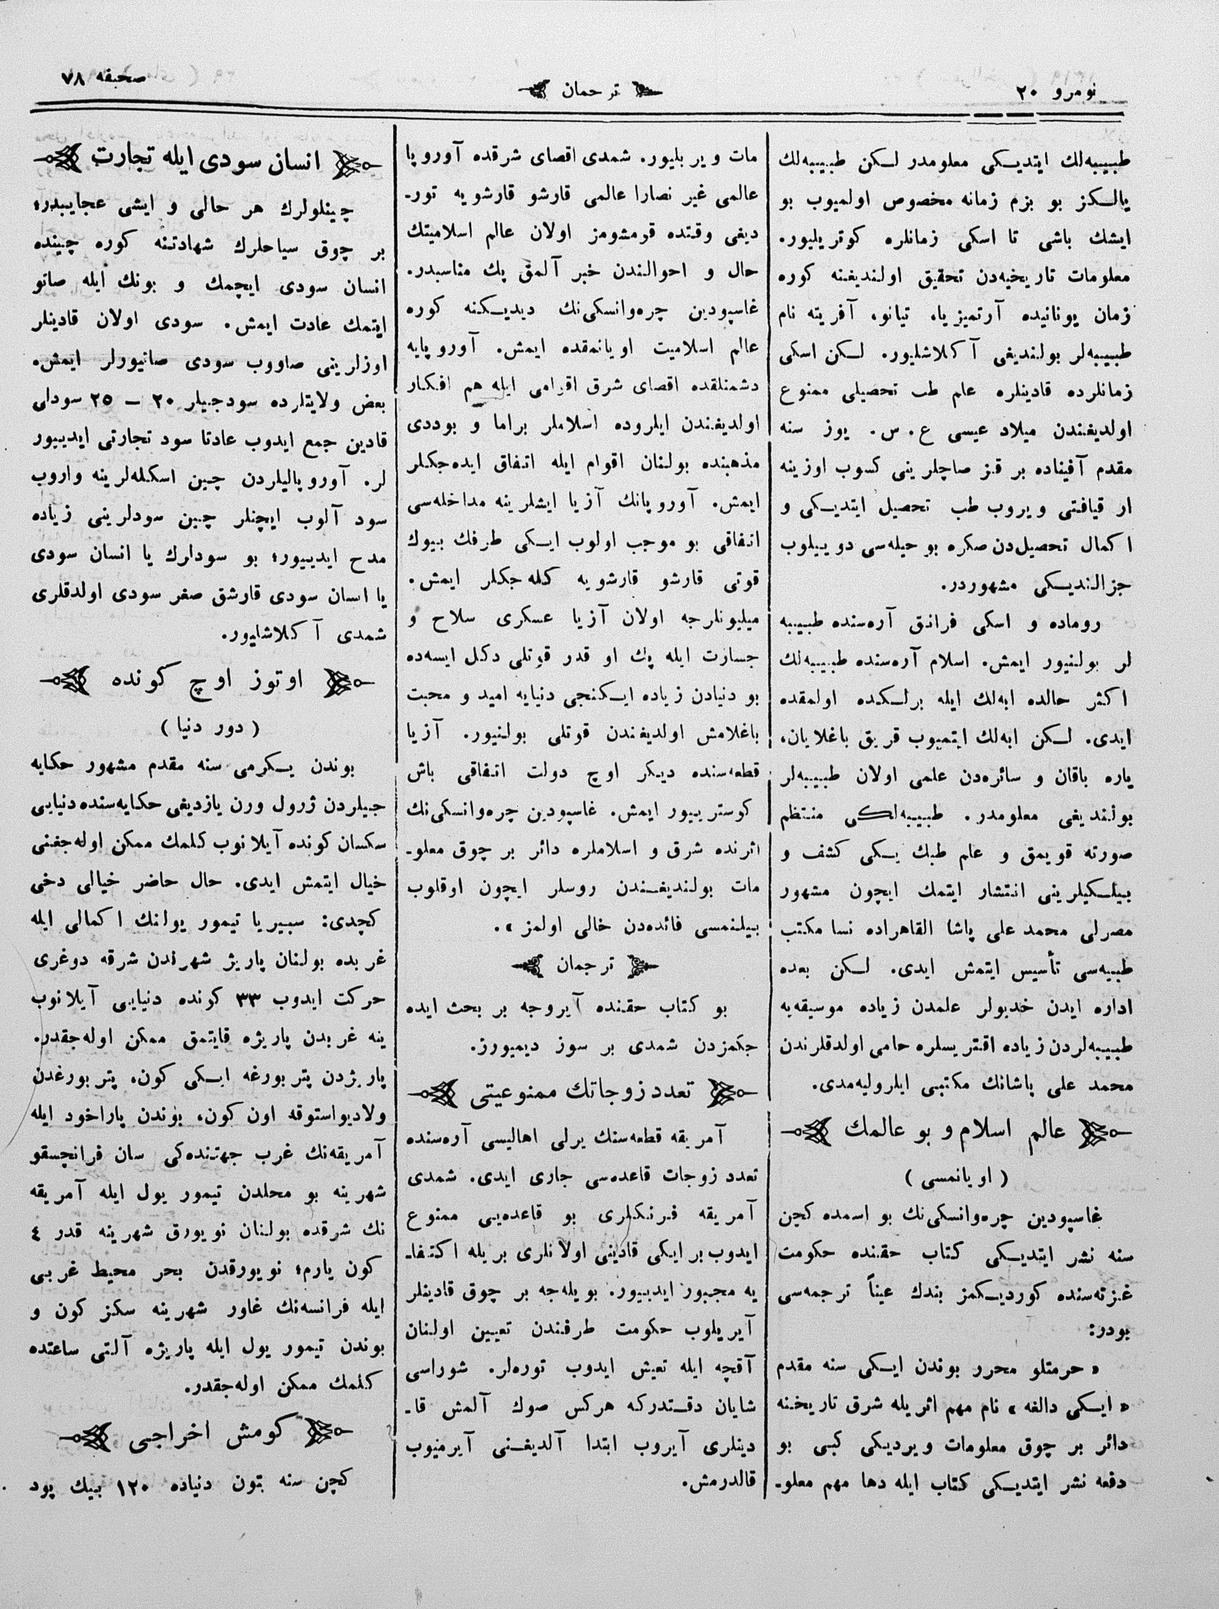 نومرو ٢٠
ترجمان
صحیفه ٧٨
طبیبه‌لك ایتدیكی معلومدر لكن طبیبه‌لك
یالكز بو بزم زمانه مخصوص اولمیوب بو
ایشك باشی تا اسكی زمانلره كوتریلیور.
معلومات تاریخیه‌دن تحقیق اولندیغنه كوره
زمان یونانیده آرتمیزیا، تیانو، آفریته نام
طبیبه‌لر بولندیغی آكلاشلیور. لكن اسكی
زمانلرده قادینلره علم طب تحصیلی ممنوع
اولدیغندن میلاد عیسی ع. س. یوز سنه
مقدم آفیناده بر قز صاچلرینی كسوب اوزینه
ار قیافتی ویروب طب تحصیل ایتدیكی و
اكمال تحصیل‌دن صكره بو حیله‌سی دوییلوب
جزالندیكی مشهوردر.
روماده و اسكی فرانق آره‌سنده طبیبه
لر بولنیور ایمش. اسلام آره‌سنده طبیبه‌لك
اكثر حالده ابه‌لك ایله برلكده اولمقده
ایدی. لكن ابه‌لك ایتمیوب قریق باغلایان،
یاره باقان و سائره‌دن علمی اولان طبیبه‌لر
بولندیغی معلومدر. طبیبه‌لكی منتظم
صورته قویمق و علم طبك یكی كشف و
بیلكیلرینی انتشار ایتمك ایچون مشهور
مصرلی محمد علی پاشا القاهراده نسا مكتب
طبیه‌سی تأسیس ایتمش ایدی. لكن بعده
اداره ایدن خدیولر علمدن زیاده موسیقه‌یه
طبیبه‌لردن زیاده اقتریسلره حامی اولدقلرندن
محمد علی پاشانك مكتبی ایلرولیه‌مدی.
عالم اسلام و بو عالمك
( اویانمسی )
غاسپودین چره‌وانسكی‌نك بو اسمده كچن
سنه نشر ایتدیكی كتاب حقنده حكومت
غزته‌سنده كوردیكمز بندك عیناً ترجمه‌سی
بودر:
« حرمتلو محرر بوندن ایكی سنه مقدم
« ایكی دالغه » نام مهم اثریله شرق تاریخنه
دائر بر چوق معلومات ویردیكی كبی بو
دفعه نشر ایتدیكی كتاب ایله دها مهم معلو-
مات ویربلیور. شمدی اقصای شرقده آوروپا
عالمی غیر نصارا عالمی قارشو قارشویه تور-
دیغی وقتده قومشومز اولان عالم اسلامیتك
حال و احوالندن خبر آلمق پك مناسبدر.
غاسپودین چره‌وانسكی‌نك دیدیكنه كوره
عالم اسلامیت اویانمقده ایمش. آوروپایه
دشمنلقده اقصای شرق اقوامی ایله هم افكار
اولدیغندن ایلروده اسلاملر براما و بوددی
مذهبنده بولنان اقوام ایله اتفاق ایده‌جكلر
ایمش. آوروپانك آزیا ایشلرینه مداخله‌سی
اتفاقی بو موجب اولوب ایكی طرفك بیوك
قوتی قارشو قارشویه كله‌جكلر ایمش.
میلیونلرجه اولان آزیا عسكری سلاح و
جسارت ایله پك او قدر قوتلی دكل ایسه‌ده
بو دنیادن زیاده ایكنجی دنیایه امید و محبت
باغلامش اولدیغندن قوتلی بولنیور. آزیا
قطعه‌سنده دیكر اوچ دولت اتفاقی باش
كوسترییور ایمش. غاسپودین چره‌وانسكی‌نك
اثرنده شرق و اسلاملره دائر بر چوق معلو-
مات بولندیغندن روسلر ایچون اوقلوب
بیلنمسی فائده‌دن خالی اولمز ».
ترجمان
بو كتاب حقنده آیروجه بر بحث ایده
جكمزدن شمدی بر سوز دیمیورز.
تعدد زوجاتك ممنوعیتی
آمریقه قطعه‌سنك یرلی اهالیسی آره‌سنده
تعدد زوجات قاعده‌سی جاری ایدی. شمدی
آمریقه فرنكلری بو قاعده‌یی ممنوع
ایدوب بر ایكی قادینی اولانلری بریله اكتفا-
یه مجبور ایدییور. بویله‌جه بر چوق قادینلر
آیریلوب حكومت طرفندن تعیین اولنان
آقچه ایله تعیش ایدوب توره‌لر. شوراسی
شایان دقتدركه هركس صوك آلمش قا-
دینلری آیروب ابتدا آلدیغنی آیرمیوب
قالدرمش.
انسان سودی ایله تجارت
چینلولرك هر حالی و ایشی عجایبدر؛
بر چوق سیاحلرك شهادتنه كوره چینده
انسان سودی ایچمك و بونك ایله صاتو
ایتمك عادت ایمش. سودی اولان قادینلر
اوزلرینی صاووب سودی صاتیورلر ایمش.
بعض ولایتلرده سودجیلر ٢٠ — ٢٥ سودلی
قادین جمع ایدوب عادتا سود تجارتی ایدییور
لر. آوروپالیلردن چین اسكله‌لرینه واروب
سود آلوب ایچنلر چین سودلرینی زیاده
مدح ایدییور؛ بو سودلرك یا انسان سودی
یا انسان سودی قارشق صغر سودی اولدقلری
شمدی آكلاشلیور.
اوتوز اوچ كونده
( دور دنیا )
بوندن یكرمی سنه مقدم مشهور حكایه
جیلردن ژرول ورن یازدیغی حكایه‌سنده دنیایی
سكسان كونده آیلانوب كلمك ممكن اوله‌جغنی
خیال ایتمش ایدی. حال حاضر خیالی دخی
كچدی: سبیریا تیمور یولنك اكمالی ایله
غربده بولنان پاریژ شهرندن شرقه دوغری
حركت ایدوب ٣٣ كونده دنیایی آیلانوب
ینه غربدن پاریژه قایتمق ممكن اوله‌جقدر.
پاریژدن پتربورغه ایكی كون، پتربورغدن
ولادیواستوقه اون كون، بوندن پاراخود ایله
آمریقه‌نك غرب جهتنده‌كی سان فرانچسقو
شهرینه بو محلدن تیمور یول ایله آمریقه
نك شرقده بولنان نویورق شهرینه قدر ٤
كون یارم؛ نویورقدن بحر محیط غربی
ایله فرانسه‌نك غاور شهرینه سكز كون و
بوندن تیمور یول ایله پاریژه آلتی ساعتده
كلمك ممكن اوله‌جقدر.
كومش اخراجی
كچن سنه بتون دنیاده ١٢٠ بیك پود